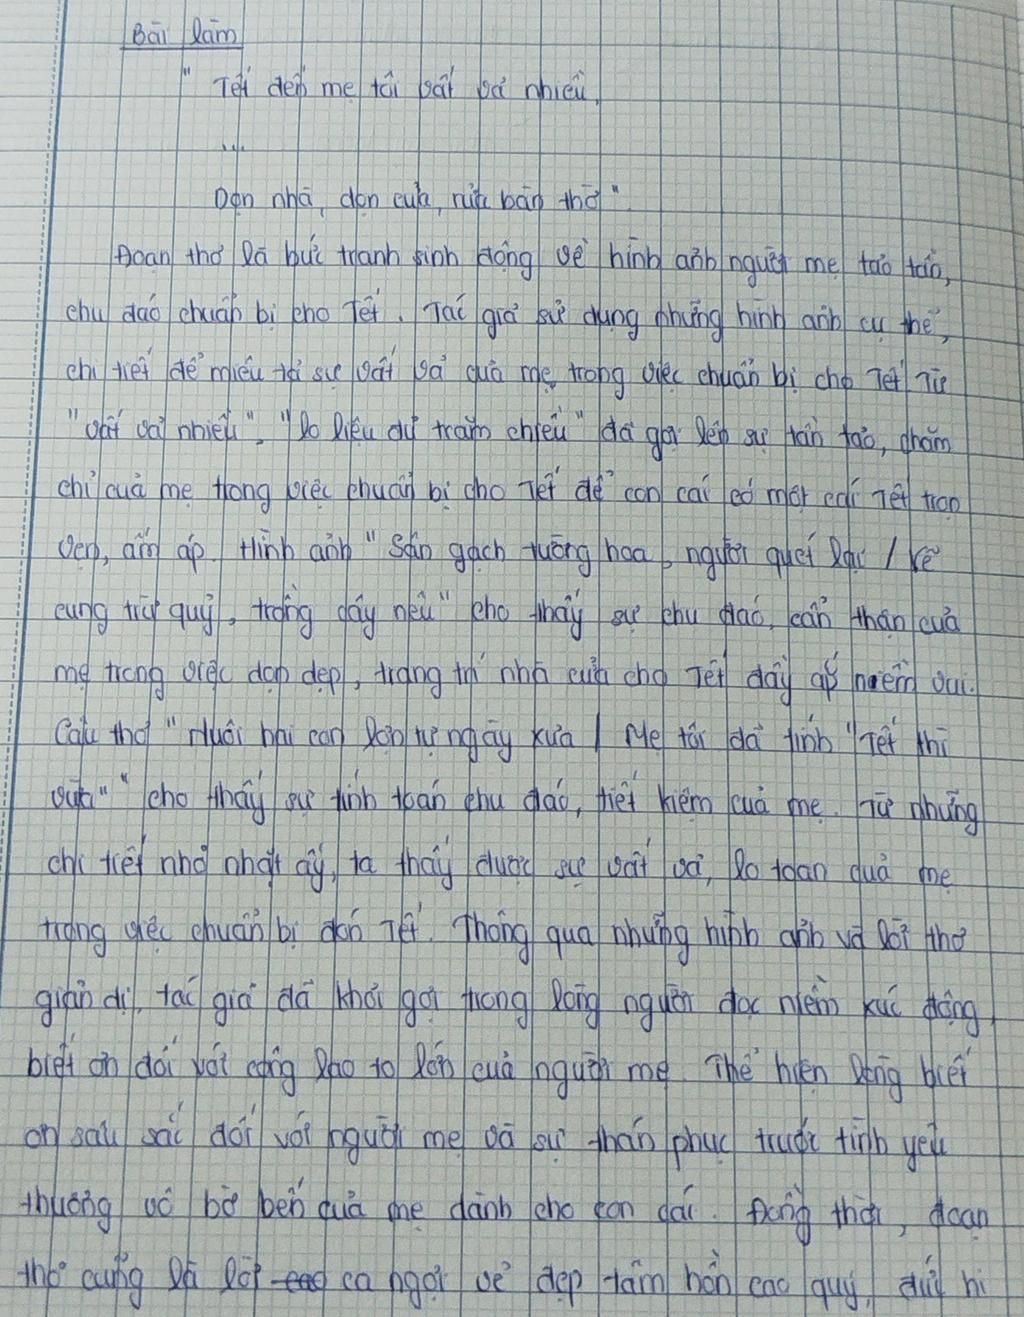 Bài làm
" Tết đến mẹ tôi vất vả nhiều,
...
Dọn nhà, dọn cửa, rửa bàn thờ".
Đoạn thơ là bức tranh sinh động về hình ảnh người mẹ tảo tần,
chu đáo chuẩn bị cho Tết. Tác giả sử dụng những hình ảnh cụ thể,
chi tiết để miêu tả sự vất vả của mẹ trong việc chuẩn bị cho Tết Từ
"vất vả nhiều", "lo liệu đủ trăm chiều" đã gợi lên sự tần tảo, chăm
chỉ của mẹ trong việc chuẩn bị cho Tết để con cái có một cái Tết trọn
vẹn, ấm áp. Hình ảnh "Sân gạch tường hoa, người quét lại / Vẽ
cung trừ quỷ, trồng cây nêu" cho thấy sự chu đáo, cẩn thận của
mẹ trong việc dọn dẹp, trang trí nhà cửa cho Tết đầy ắp niềm vui.
Câu thơ "Nuôi hai con lợn tự ngày xưa / Mẹ tôi đã tính "Tết thì
vừa"" cho thấy sự tính toán chu đáo, tiết kiệm của mẹ. Từ những
chi tiết nhỏ nhặt ấy, ta thấy được sự vất vả, lo toan của mẹ
trong việc chuẩn bị đón Tết. Thông qua những hình ảnh và lời thơ
giản dị, tác giả đã khơi gợi trong lòng người đọc niềm xúc động,
biết ơn đối với công lao to lớn của người mẹ. Thể hiện lòng biết
ơn sâu sắc đối với người mẹ và sự thán phục trước tình yêu
thương vô bờ bến của mẹ dành cho con cái. Đồng thời, đoạn
thơ cũng là lời ca ngợi vẻ đẹp tâm hồn cao quý, đức hi